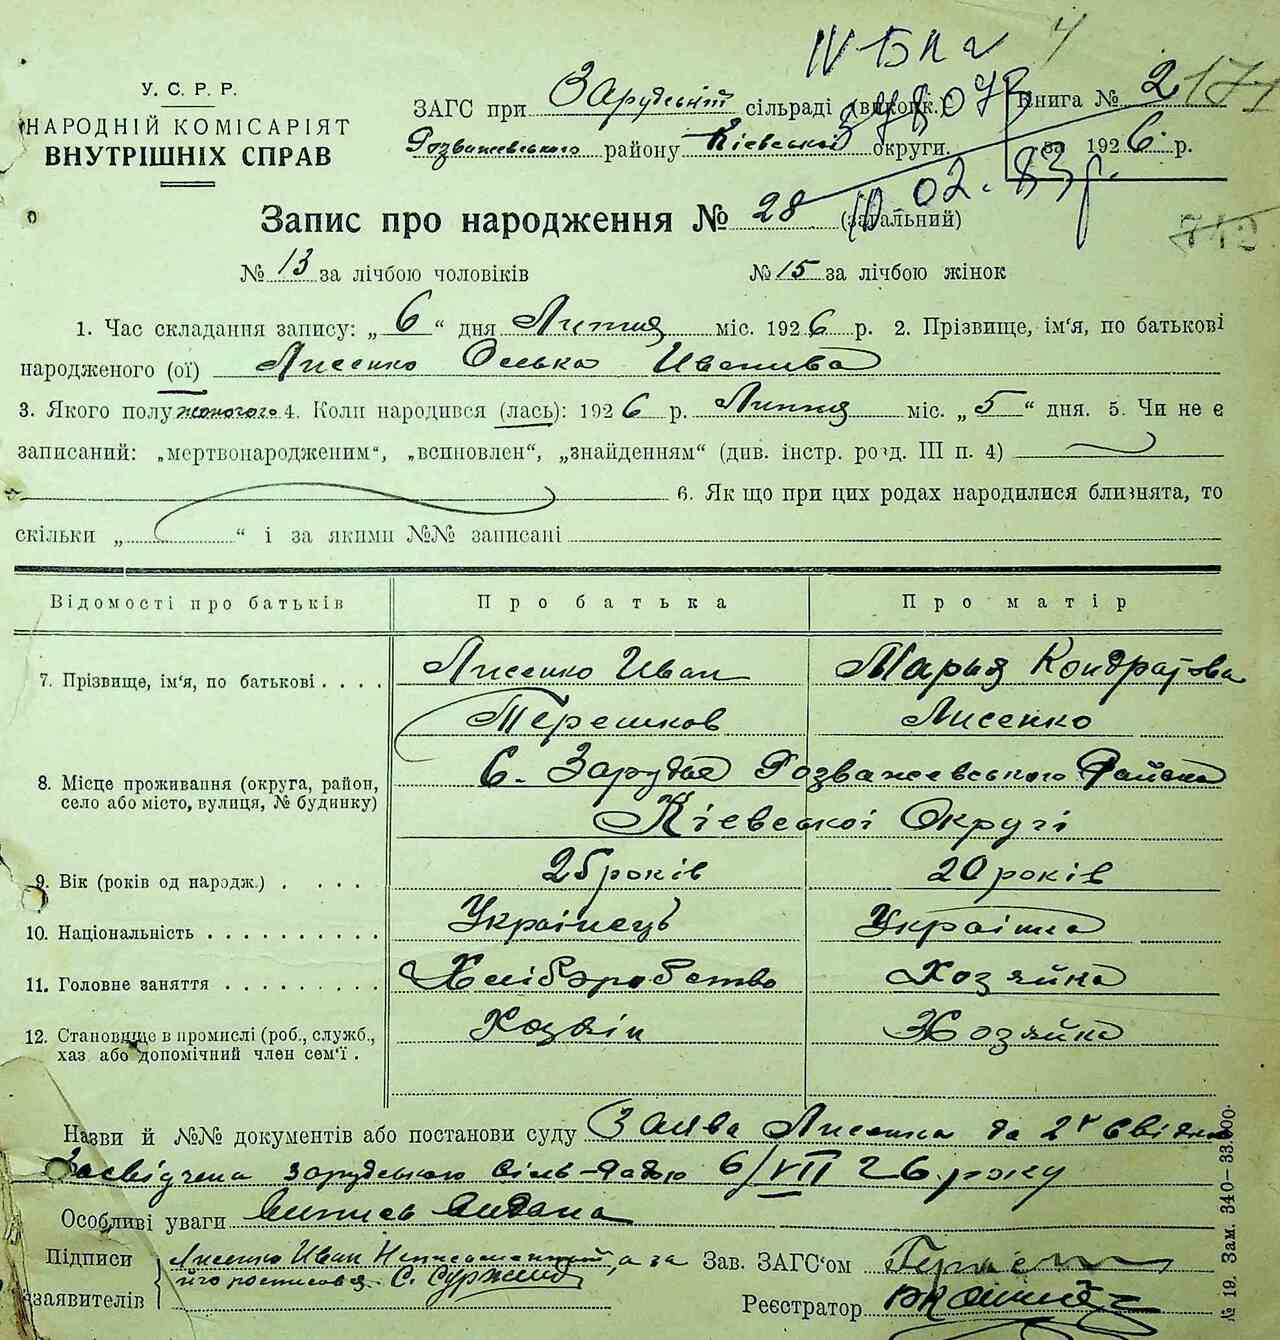 IV-БК
У. С. Р. Р.
НАРОДНІЙ КОМІСАРІЯТ
ВНУТРІШНІХ СПРАВ
ЗАГС при Зарудській сільраді (виконк.)
Розважевського району Кіевської округи.
Книга № 2 171
за 1926 р.
10.02.83 р.
Запис про народження № 28 (загальний)
742
№ 13 за лічбою чоловіків № 15 за лічбою жінок
1. Час складання запису: „ 6 “ дня Липня міс. 1926 р. 2. Прізвище, ім'я, по батькові
народженого (ої) Лисенко Олька Иванива
3. Якого полу женочого 4. Коли народився (лась): 1926 р. Липня міс. „ 5 “ дня. 5. Чи не є
записаний: „мертвонародженим“, „всиновлен“, „знайденням“ (див. інстр. розд. III п. 4)
6. Як що при цих родах народилися близнята, то
скільки „ “ і за якими №№ записані
Відомості про батьків Про батька Про матір
7. Прізвище, ім'я, по батькові . . . . Лисенко Иван Марья Кондратова
Терешков Лисенко
8. Місце проживання (округа, район, село або місто, вулиця, № будинку) С. Зарудя Розважевського Района
Кіевської Округі
9. Вік (років од народж.) . . . . . 25 років 20 років
10. Національність . . . . . . . . . . Українець Українка
11. Головне заняття . . . . . . . . . Хлібэробство Хозяйка
12. Становище в промислі (роб., служб., Хозяін Хозяйка
хаз або допомічний член сем'ї .
Назви й №№ документів або постанови суду Заява Лисенка да 2х свідків
Засвідчена зарудською сіль-радою 6/VII 26 року
Особливі уваги Випись видана
Підписи Лисенко Иван Неписьменный, а за Зав. ЗАГС'ом
заявителів його росписовся С.
Реєстратор
№ 19. Зам. 340—33.000.